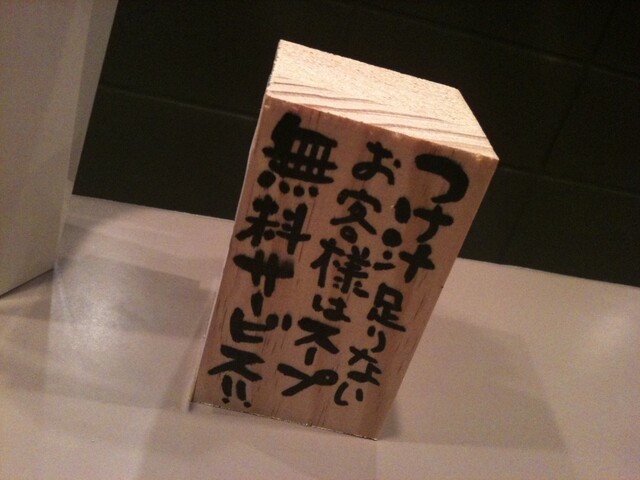 つけ汁足りない
お客様はスープ
無料サービス!!